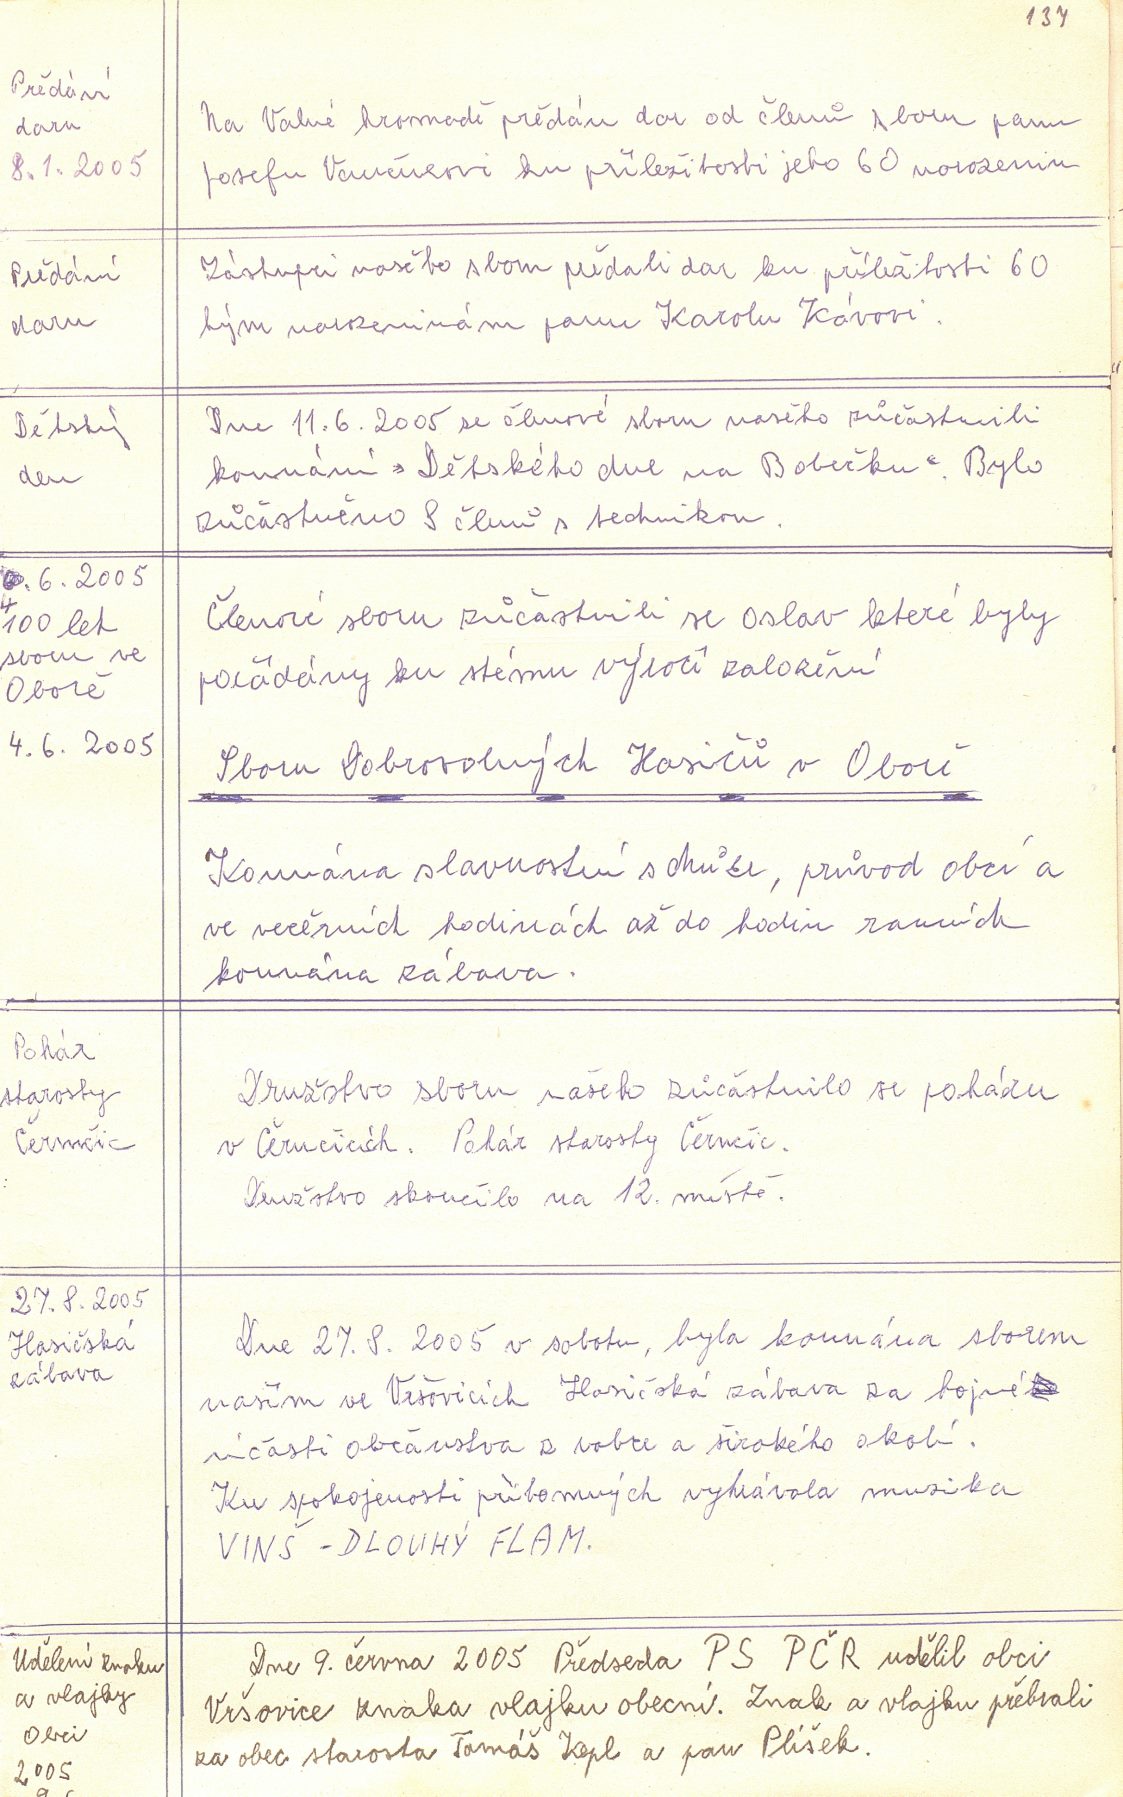 137
Předání
daru
8.1.2005
Na Valné hromadě předán dar od členů sboru panu
Josefu ku příležitosti jeho 60 narozenin
Předání
daru
Zástupci našeho sboru předali dar ku příležitosti 60
tým narozeninám panu Karolu Kávovi.
Dětský
den
Dne 11.6.2005 se členové sboru našeho zůčastnili
konnání „Dětského dne na Bobečku“. Bylo
zůčástněno 8 členů s technikou.
.6.2005
4
100 let
sboru ve
Oboře
4.6. 2005
Členové sboru zůčástnili se oslav které byly
pořádány ku stému výročí založení
Sboru Dobrovolných Hasičů v Oboře
Konnána slavnostní schůze, průvod obcí a
ve večerních hodinách až do hodin ranních
konnána zábava.
Pohár
starosty
Černčic
Družstvo sboru našeho zůčástnilo se poháru
v Černčicích. Pohár starosty Černčic.
Družstvo skončilo na 12. místě.
27.8.2005
Hasičská
zábava
Dne 27.8. 2005 v sobotu, byla konnána sborem
naším ve Vršovicích Hasičská zábava za hojné
účasti občanstva z vobce a širokého okolí.
Ku spokojenosti přítomných vyhrávala muzika
VINŠ - DLOUHÝ FLAM.
Udělení znaku
a vlajky
obci
2005
Dne 9. června 2005 Předseda PS PČR udělil obci
Vršovice znak a vlajku obecní. Znak a vlajku přebrali
za obec starosta Tomáš Kepl a pan Plíšek.